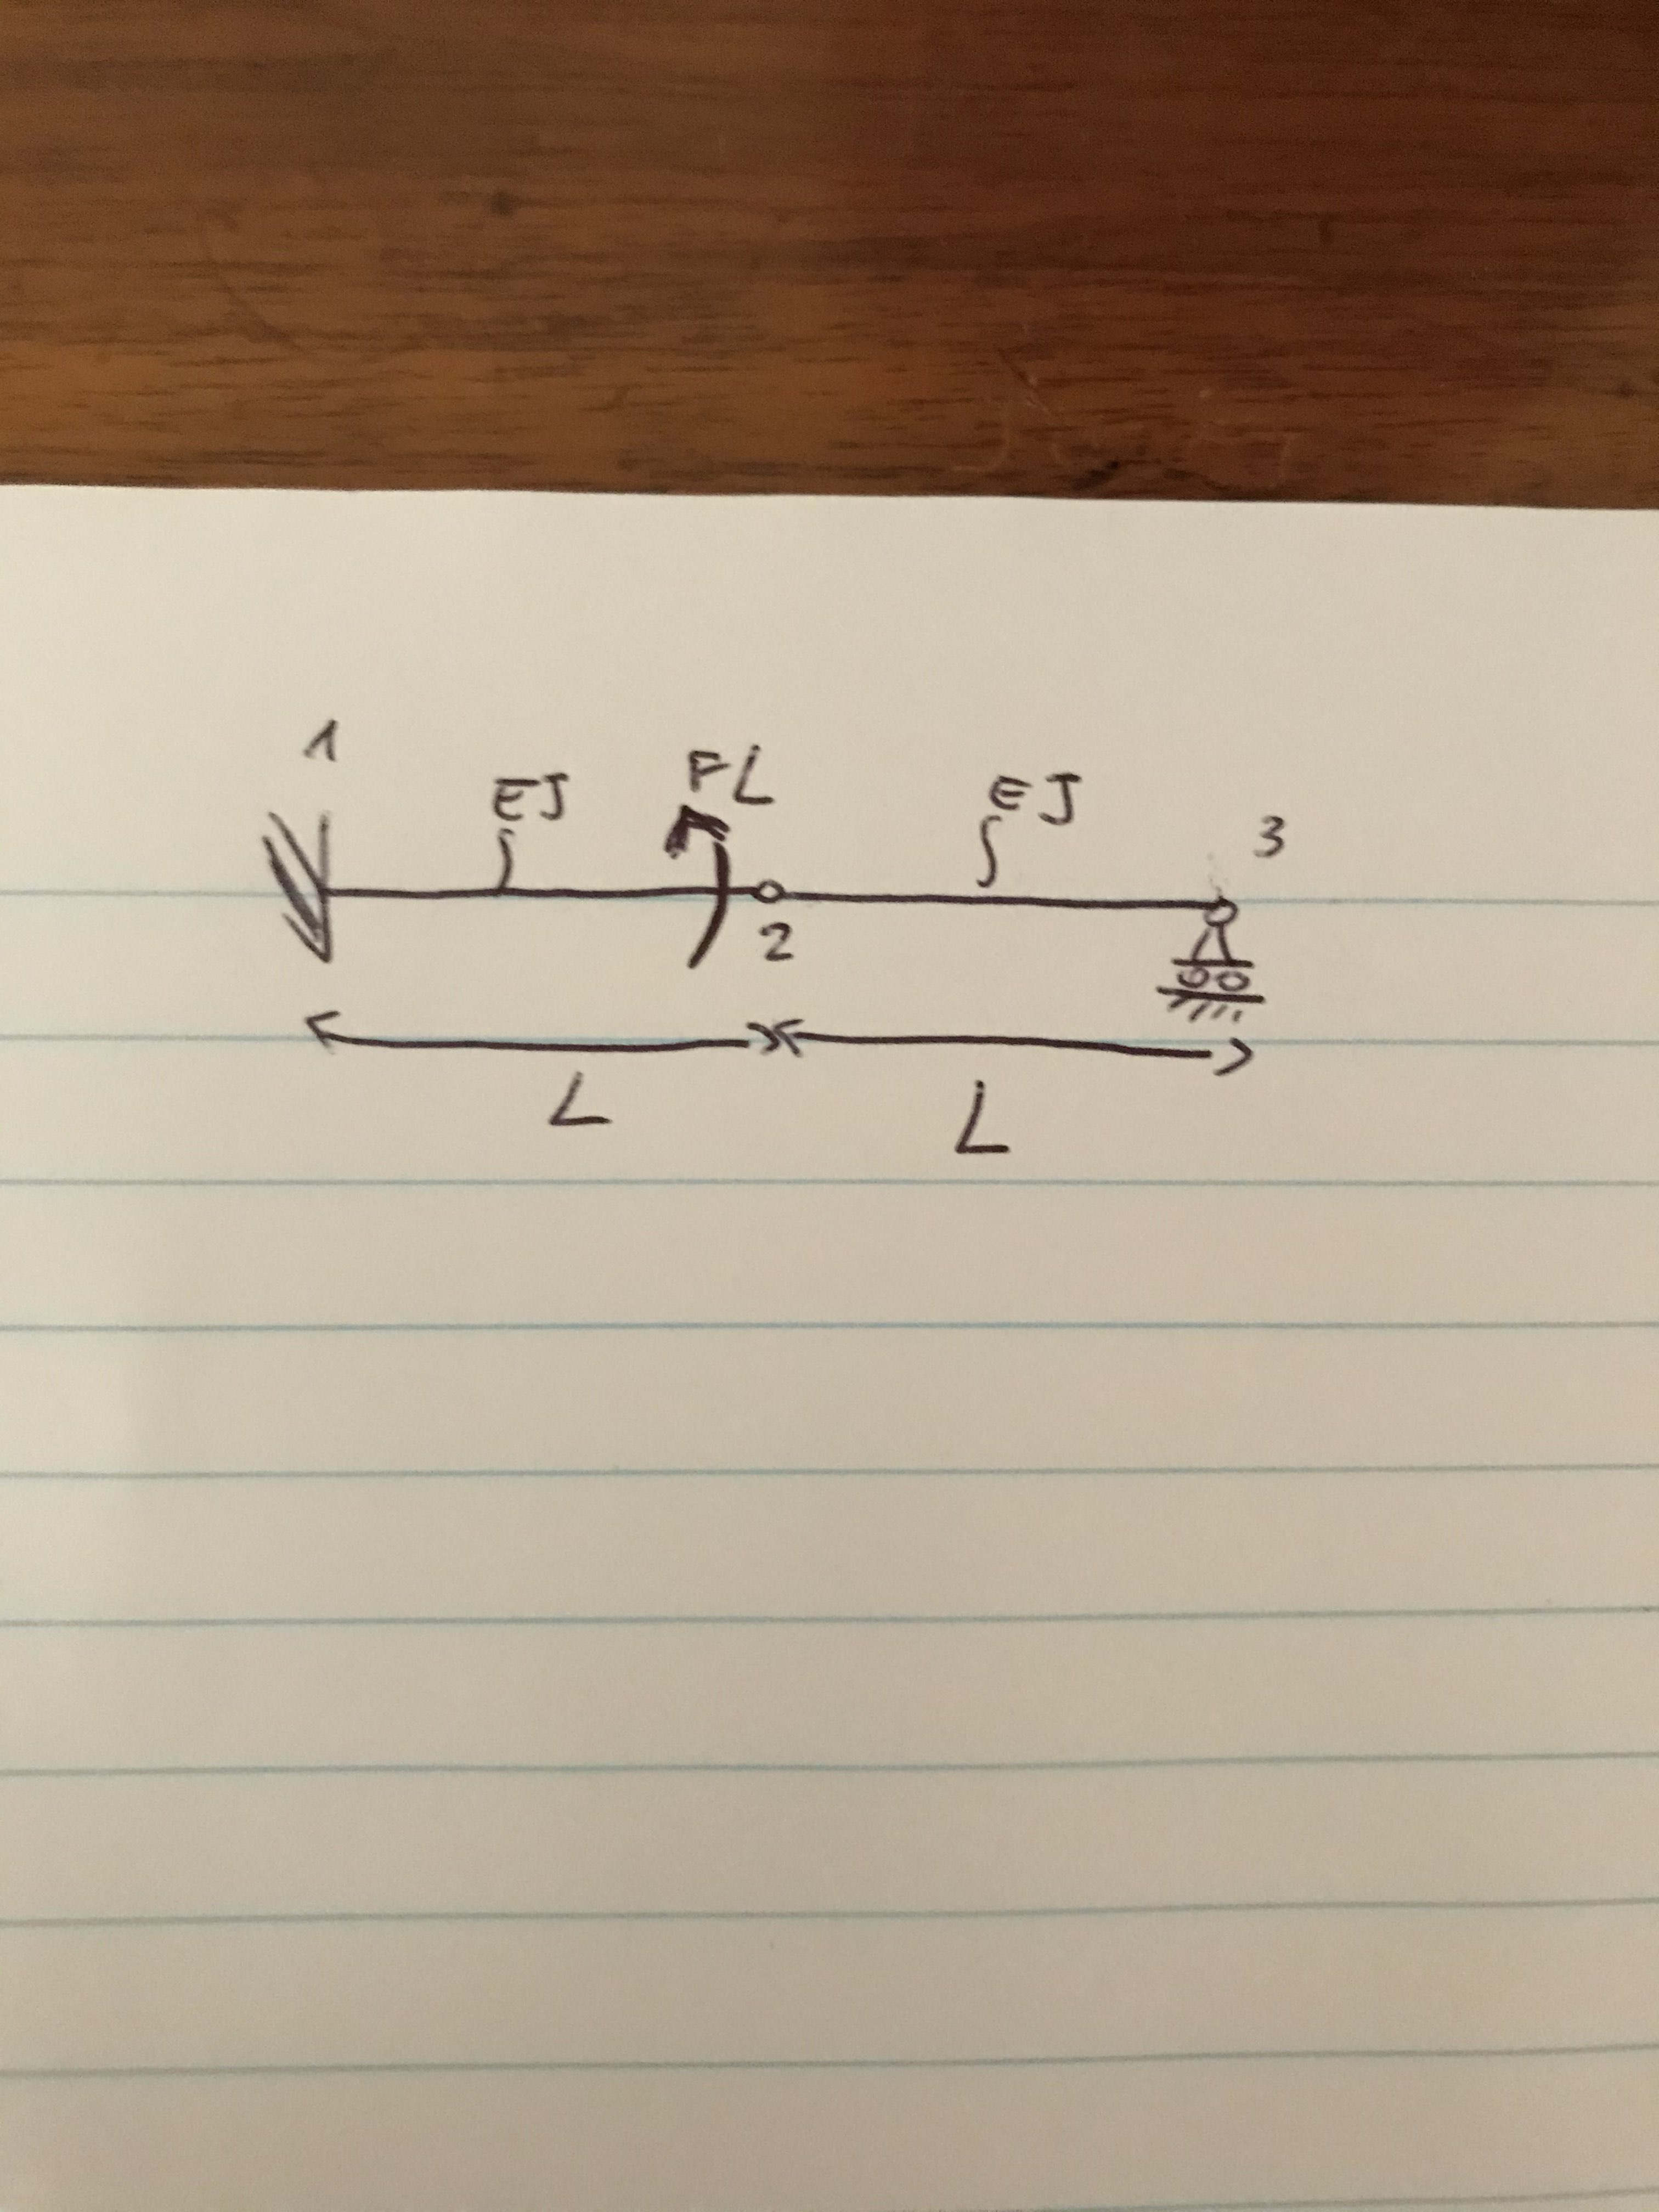 1
EJ
FL
EJ
3
2
L
L